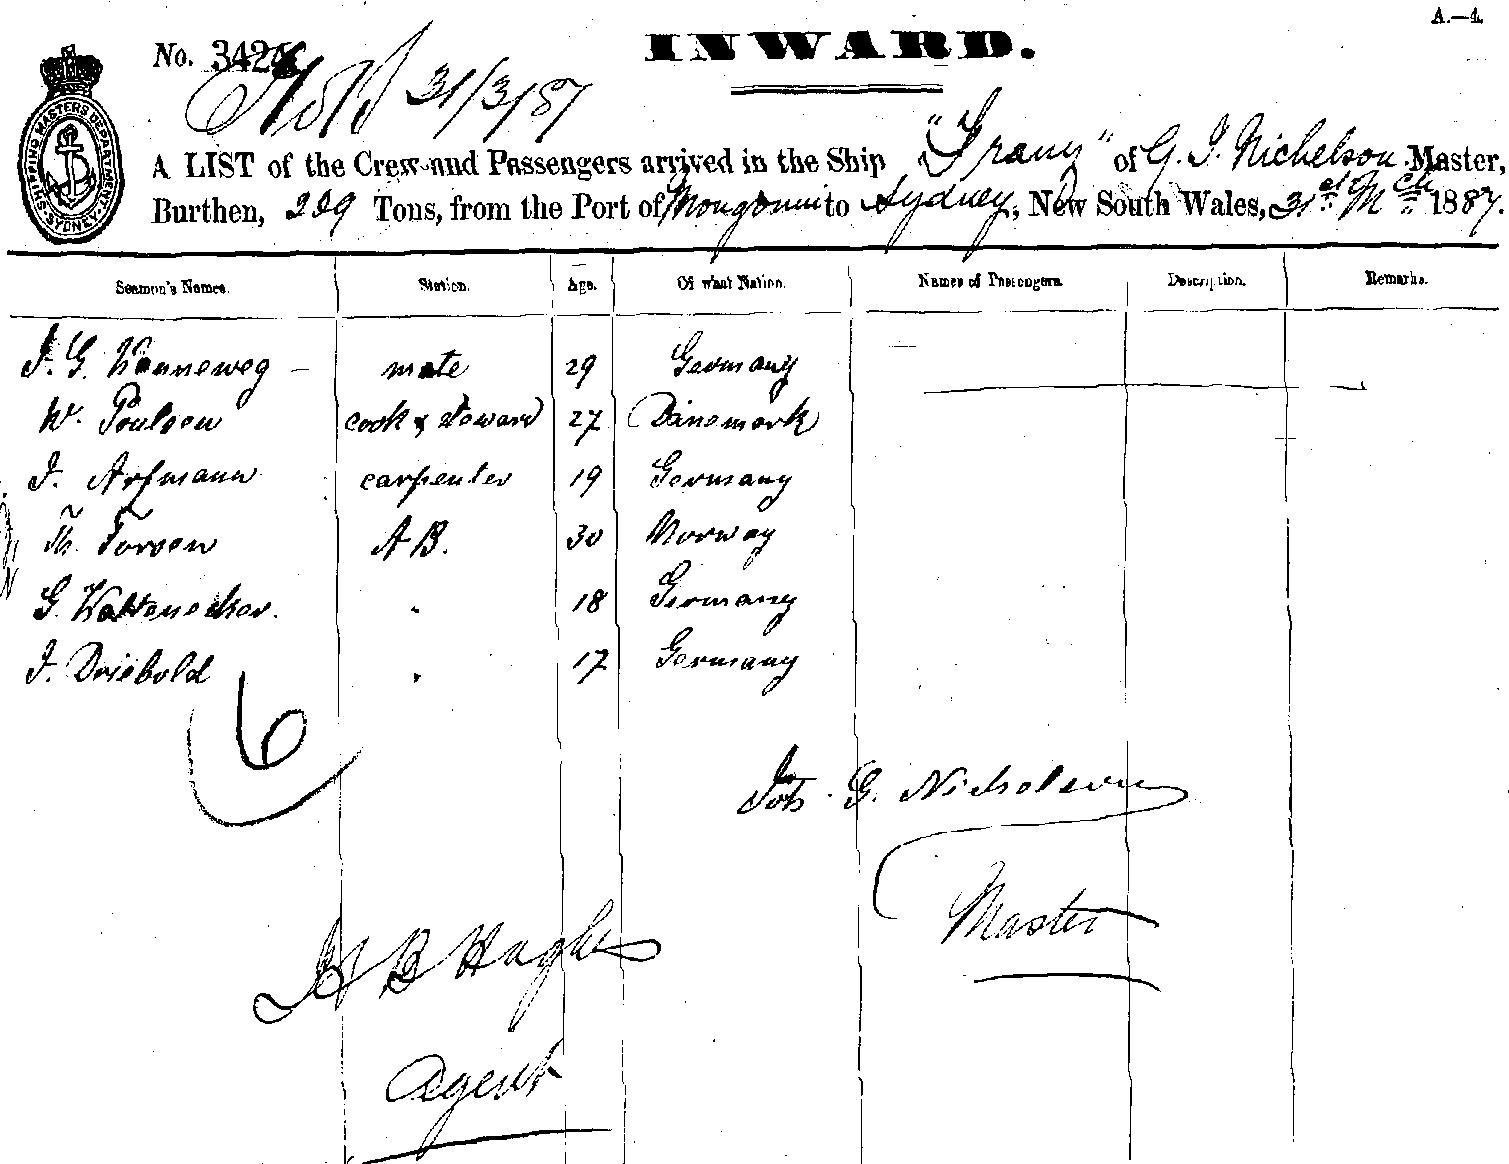 A.—4.
No. 3424
INWARD.
31/3/87
SHIPPING MASTERS DEPARTMENT SYDNEY
A LIST of the Crew and Passengers arrived in the Ship "Franz" of G. J. Nichelson Master,
Burthen, 229 Tons, from the Port of Mongonui to Sydney, New South Wales, 31st Mch 1887.
Seamen's Names. Station. Age. Of what Nation. Names of Passengers. Description. Remarks.
J. G. Wanneweg mate 29 Germany
W. Poulsen cook & steward 27 Dänemark
J. Arfmann carpenter 19 Germany
Th. Torsen A B. 30 Norway
G. 18 Germany
J. Driebold " 17 Germany
6
Joh. G. Nicholson
Master
H B Hughes
Agent